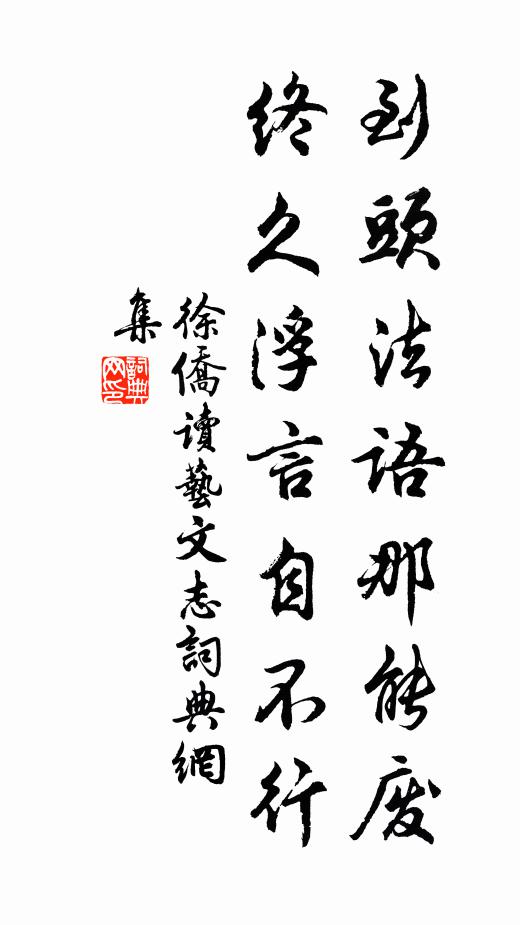 到頭法語那能廢
終久浮言自不行
徐僑讀藝文志詞典網
集
詞典網印